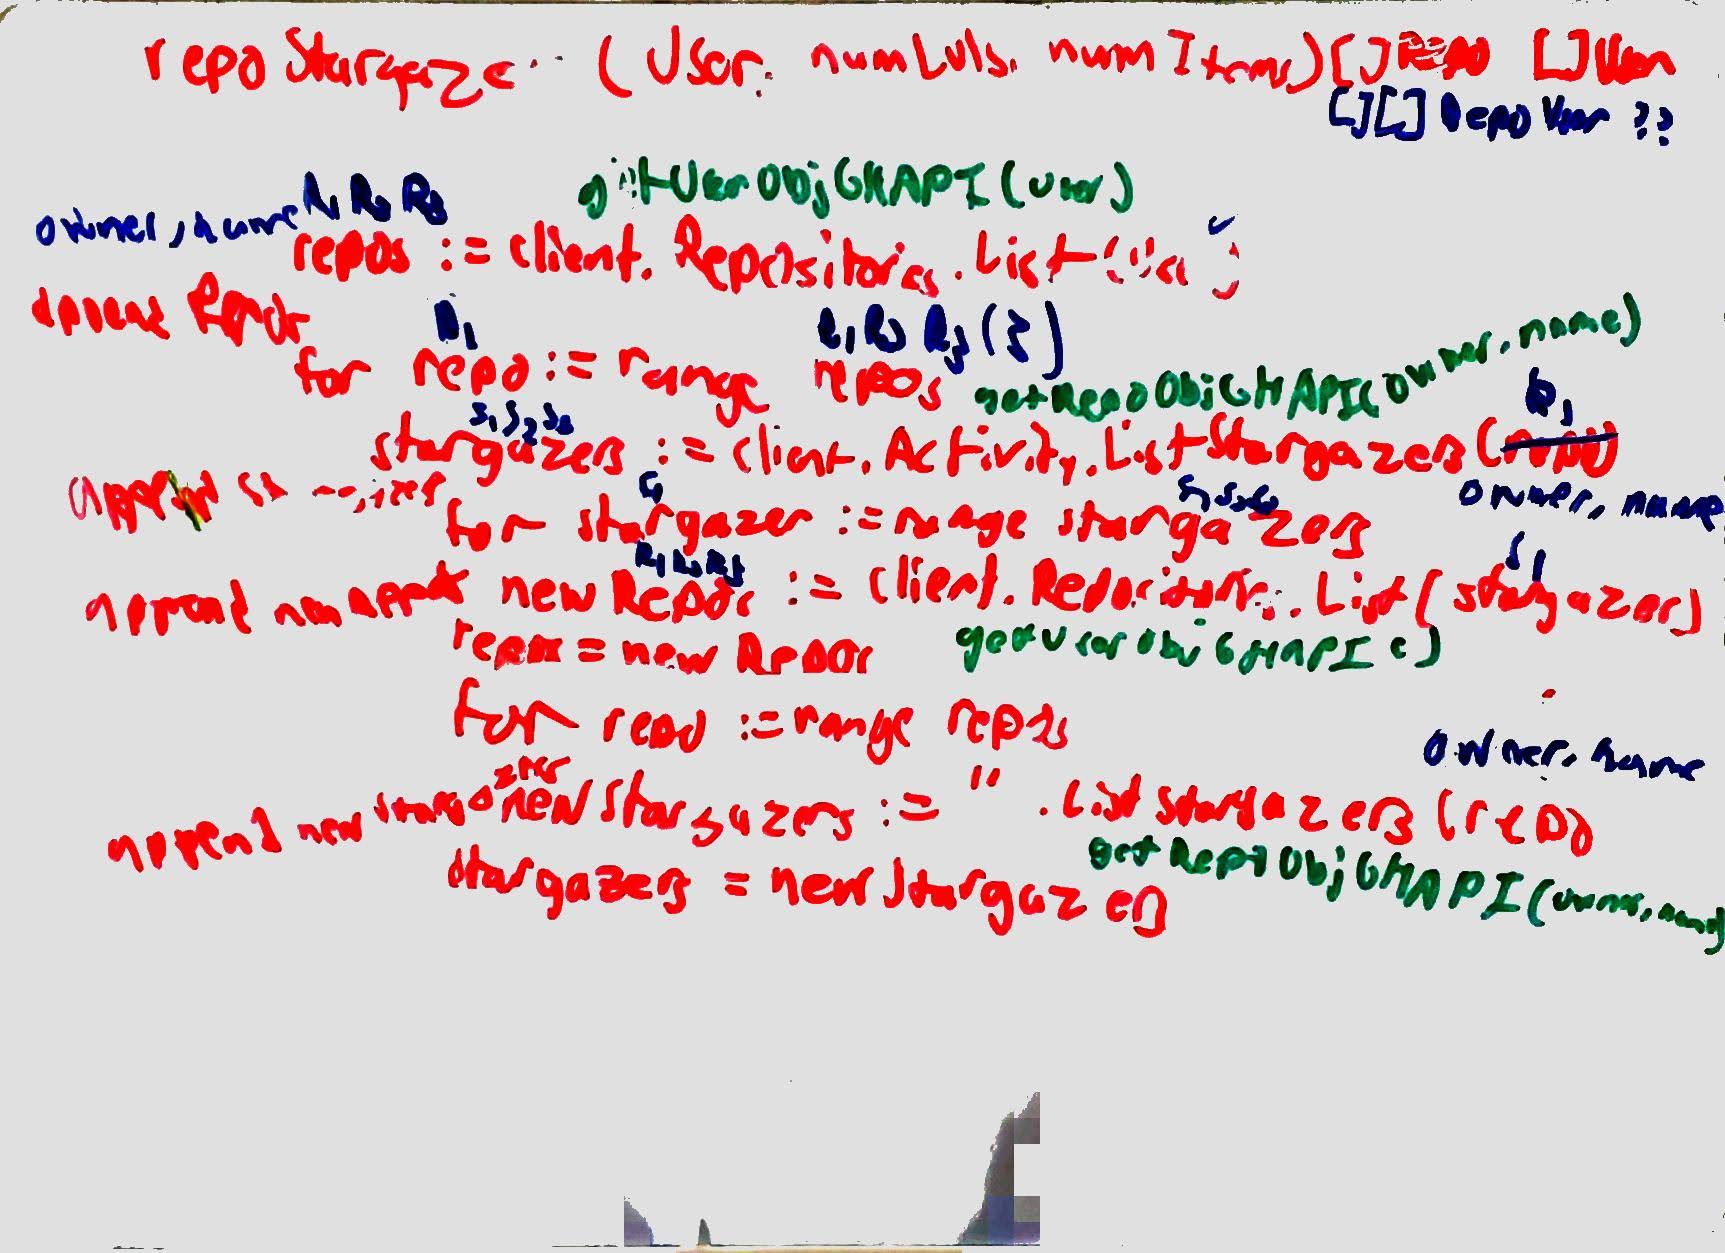 repoStargaze.. (User, numLvls, numItems) []Repo []User
[][] Repo User ??
getUserObjGHAPI(user)
owner, name R1 R2 R3
repos := client.Repositories.List("")
append Repos
R1 R1 R2 R3 {}
for repo := range repos
getRepoObjGHAPI(owner, name)
S1 S2 S3 R1
stargazers := client.Activity.ListStargazers(repo)
owner, name
append
S1 S1 S2 S3
for stargazer := range stargazers
R1 R2 R3 S1
append new Repos newRepos := client.Repositories.List(stargazer)
repos = new Repos getUserObjGHAPI()
for repo := range repos
owner, name
append new stargazers newStargazers := " .ListStargazers(repo)
stargazers = newStargazers
getRepoObjGHAPI(owner, name)